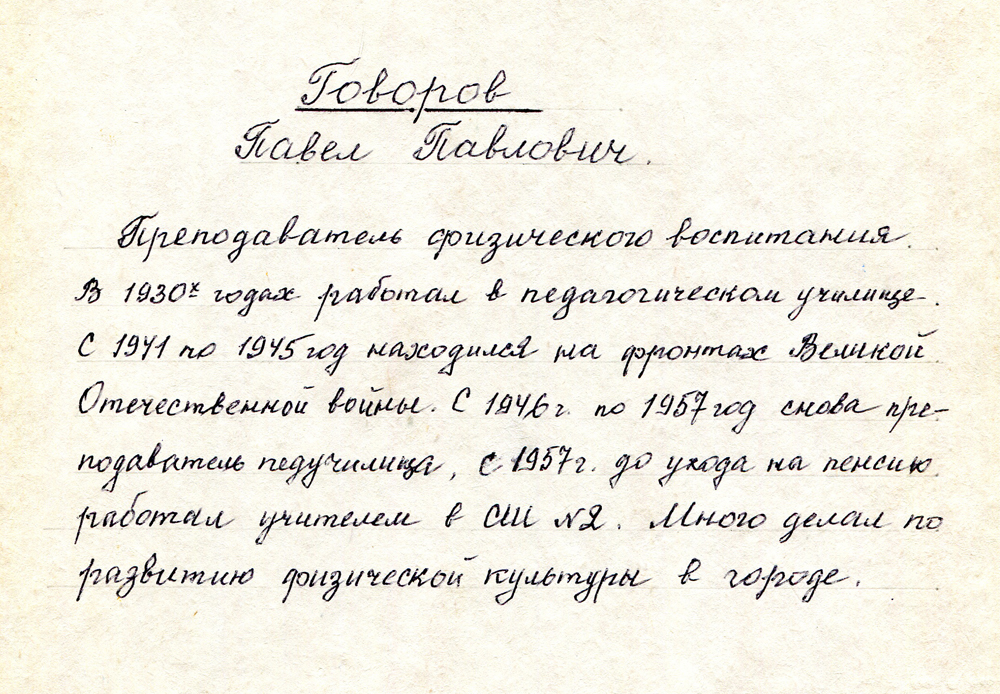 Говоров
Павел Павлович.
Преподаватель физического воспитания.
В 1930х годах работал в педагогическом училище.
С 1941 по 1945 год находился на фронтах Великой
Отечественной войны. С 1946 г. по 1957 год снова пре-
подаватель педучилища, с 1957 г. до ухода на пенсию
работал учителем в СШ №2. Много делал по
развитию физической культуры в городе.